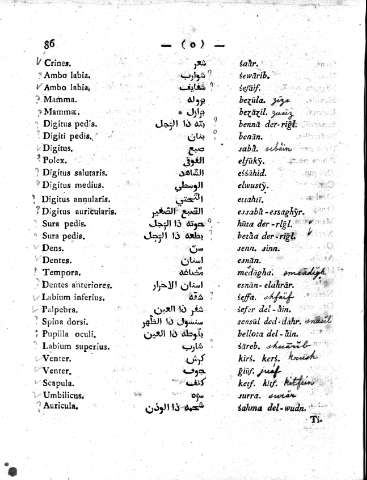 86 — ( ٥ ) —
Crines. شعر šaãr.
Ambo labia. شوارب šewârib.
Ambo labia. شفايف šefâif.
Mamma. بزوله bezûla.
Mammæ. بزازل bezâzil.
Digitus pedis. بنه ذا الرجل bennä der-riǧl.
Digiti pedis. بنان benân.
Digitus. صبع sabã.
Polex. الفوق elfûky.
Digitus salutaris. الشاهد eššâhid.
Digitus medius. الوسطي elwusty.
Digitus annularis.
Digitus auricularis. الصبع الصغير essabã-essaghŷr.
Sura pedis. حوته ذا الرجل hûta der-riǧl.
Sura pedis. بطه ذا الرجل der-riǧl.
Dens. سن senn. sinn.
Dentes. اسنان esnân.
Tempora. مضاغه medâgha.
Dentes anteriores. اسنان الاحرار esnân-elahrâr.
Labium inferius. شفة šeffa.
Palpebra. شفر ذا العين šefer del-ãin.
Spina dorsi. سنسول ذا الظهر sensûl ded-dahr.
Pupilla oculi. بلوطة ذا العين bellota del-ãin.
Labium superius. شارب šâreb.
Venter. كرش kirš. kerš.
Venter. جوف ǧûf.
Scapula. كتف ketf. kitf.
Umbilicus. سره surra.
Auricula. شحمه ذا الوذن šahma del-wudn.
Ti.